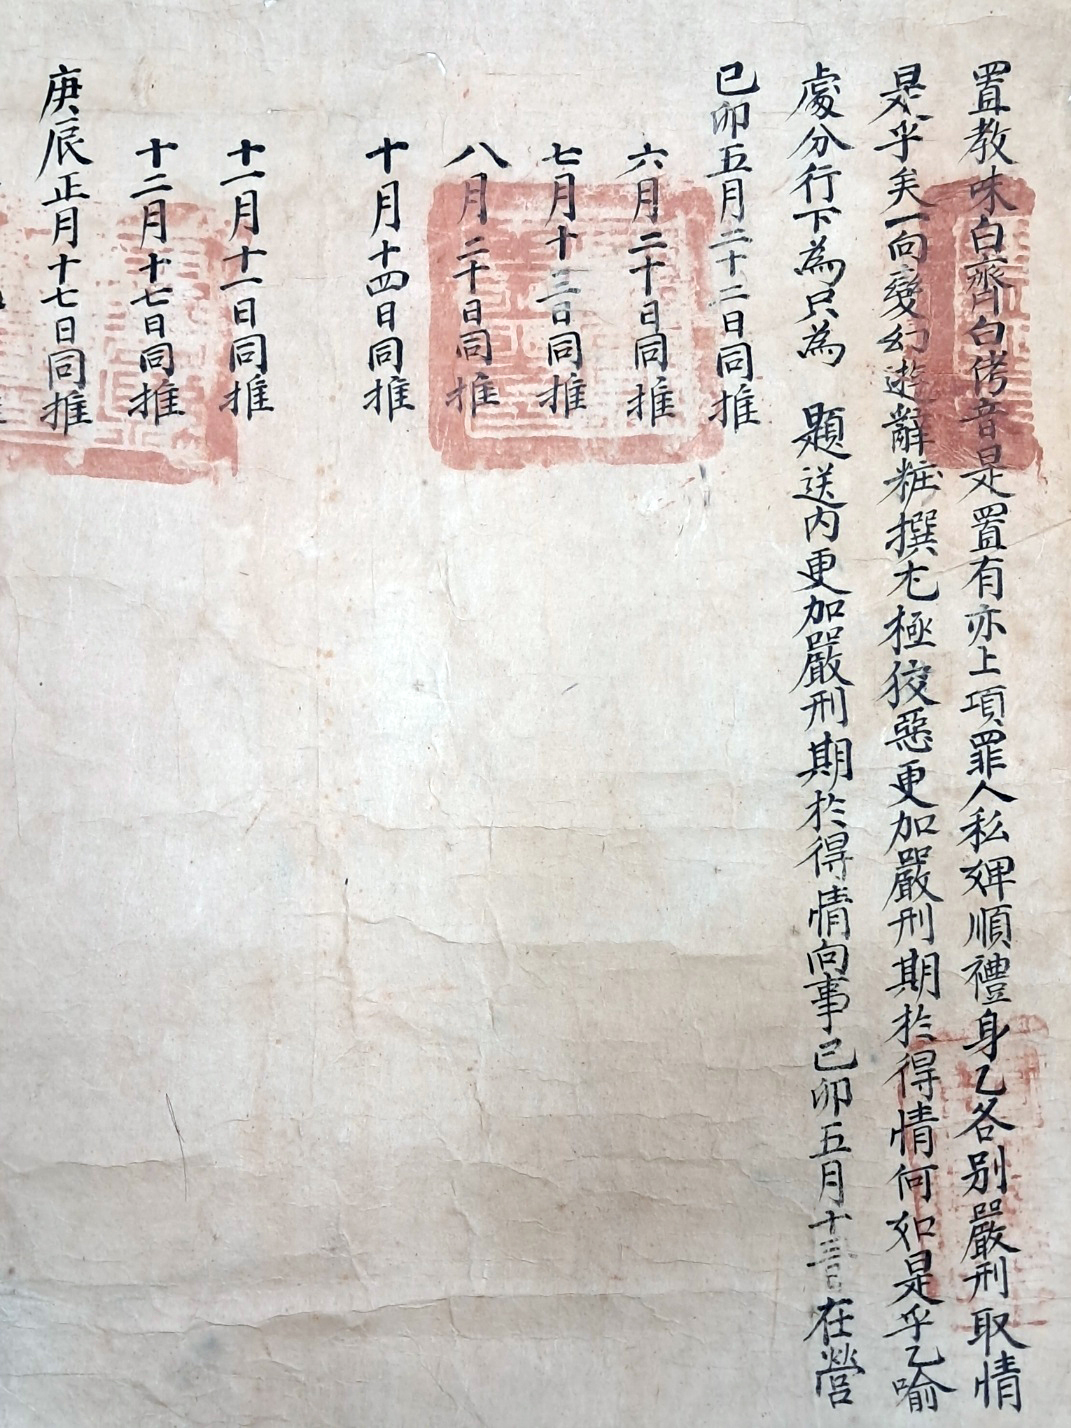 置教味白齊白侤音是置有亦上項罪人私婢順禮身乙各別嚴刑取情
是乎矣一向變幻遊辭粧撰尤極狡惡更加嚴刑期於得情何如是乎乙喻
處分行下為只為 題送內更加嚴刑期於得情向事己卯五月十三日在營
己卯五月二十二日同推
六月二十日同推
七月十三日同推
八月二十日同推
十月十四日同推
十一月十一日同推
十二月十七日同推
庚辰正月十七日同推